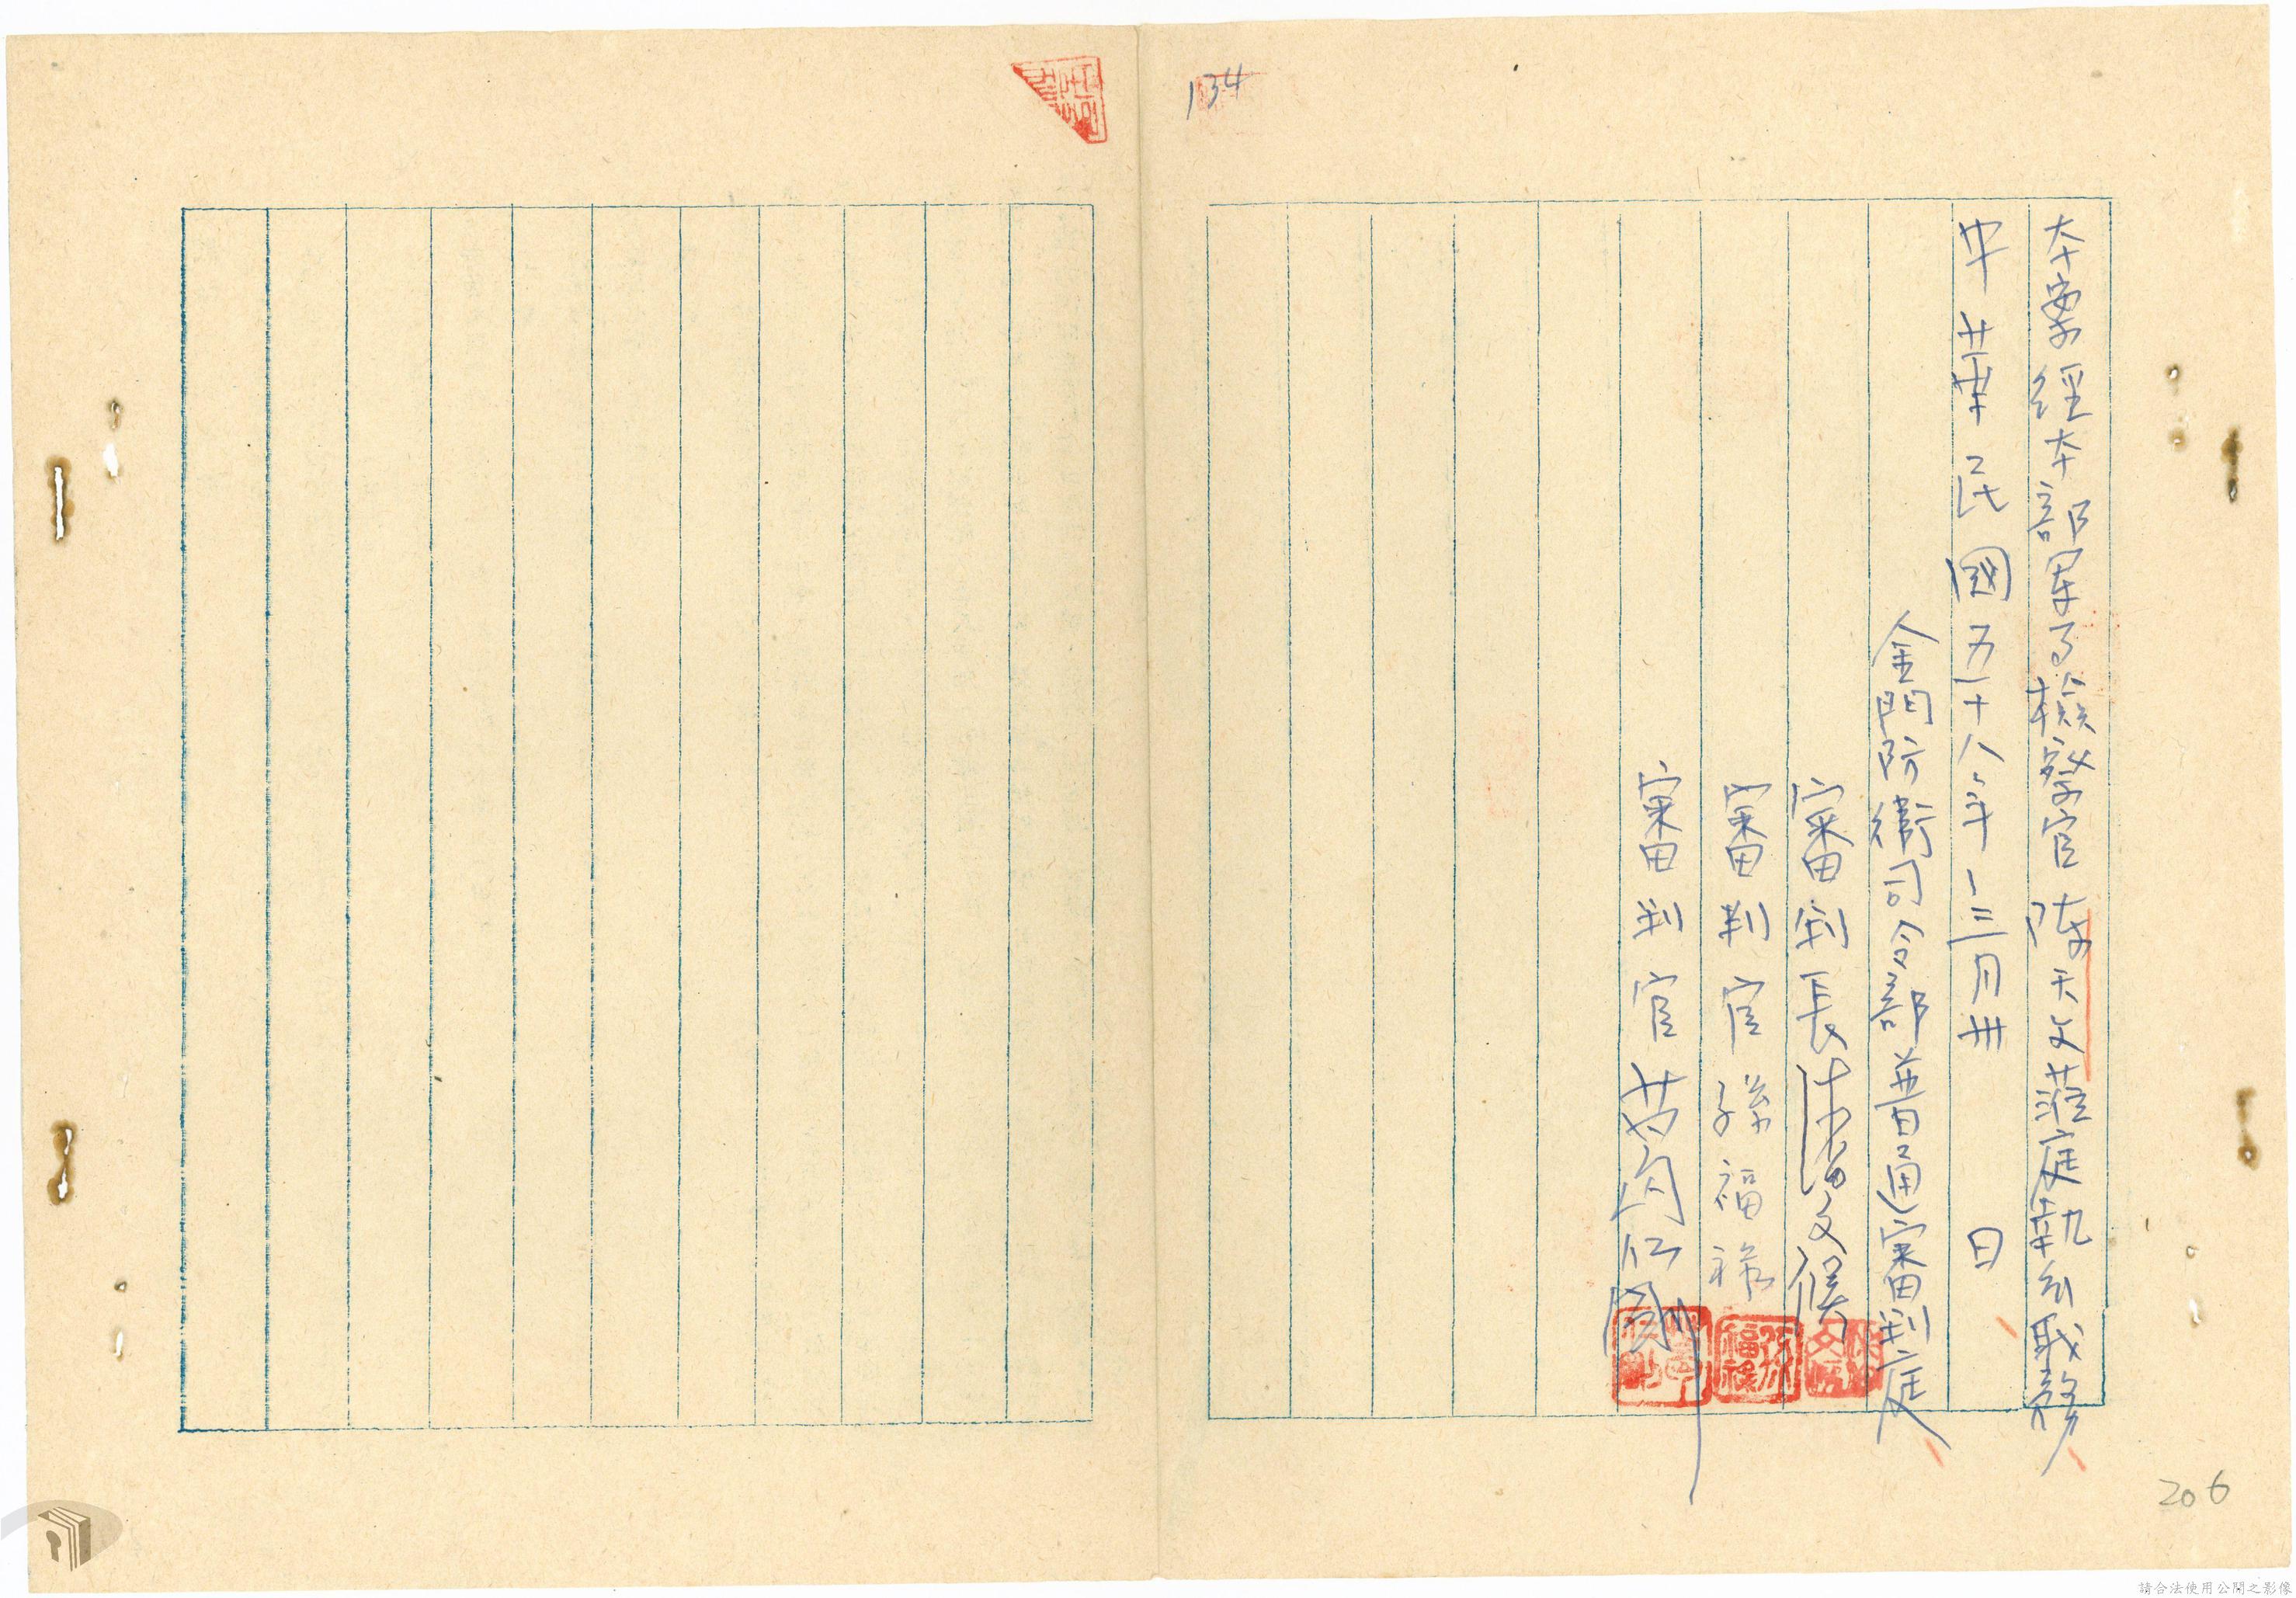 134
本案經本部軍事檢察官陳天文蒞庭執行職務
中華民國五十八年十二月廿 日
金門防衛司令部普通審判庭
審判長 文
審判官孫福祿
審判官
206
請合法使用公開之影像